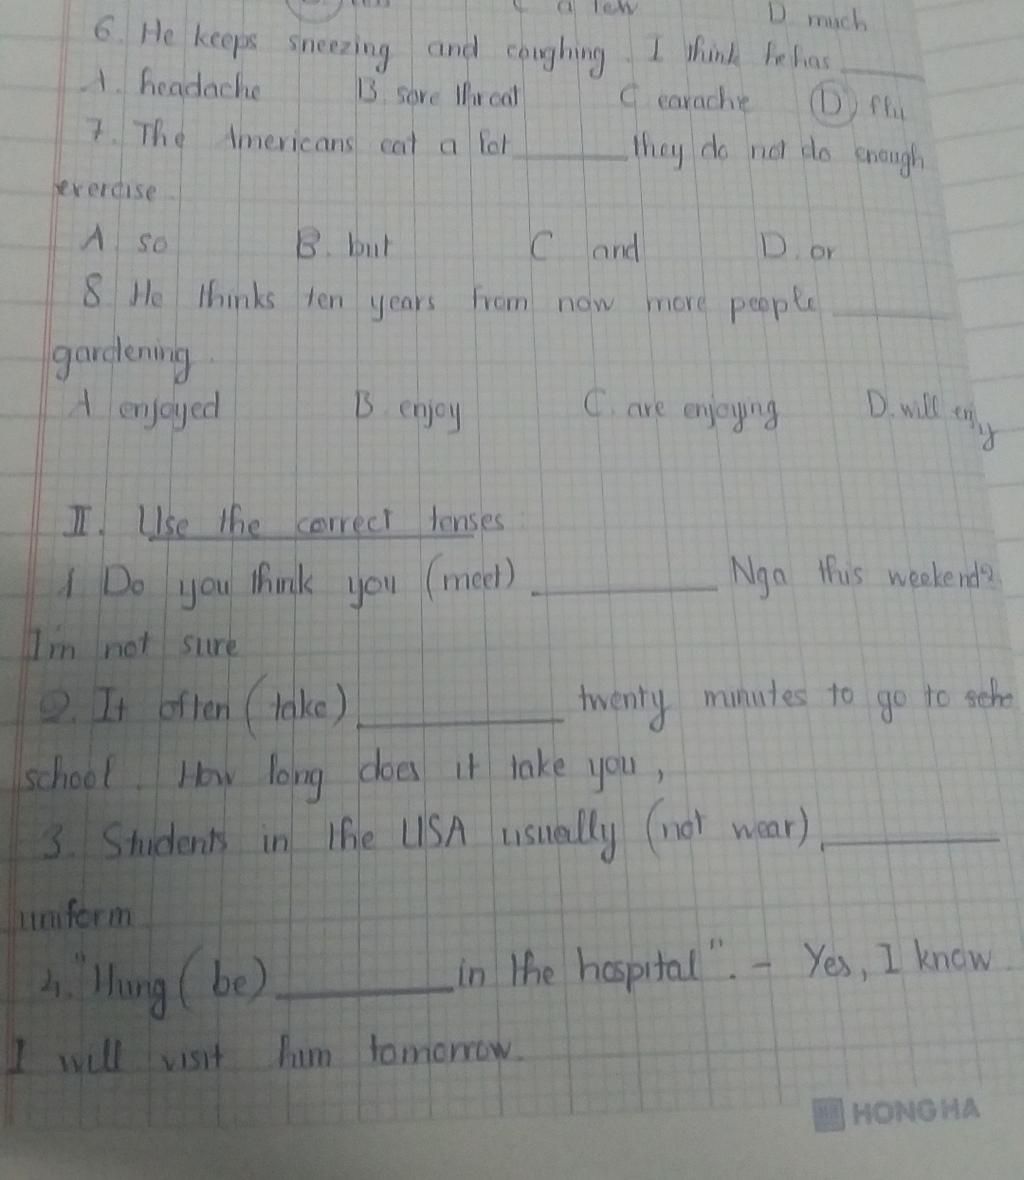 C a few D much
6. He keeps sneezing and coughing. I think he has ______
A. headache B sore throat C earache D flu
7. The Americans eat a lot ______ they do not do enough
exercise.
A so B. but C and D. or
8. He thinks ten years from now more people ______
gardening.
A enjoyed B enjoy C. are enjoying D. will enjoy
II. Use the correct tenses
1 Do you think you (meet) ______ Nga this weekend?
I'm not sure
2. It often (take) ______ twenty minutes to go to scho
school. How long does it take you,
3. Students in the USA usually (not wear) ______
uniform
4. "Hung (be) ______ in the hospital". - Yes, I know.
I will visit him tomorrow.
HONG HA